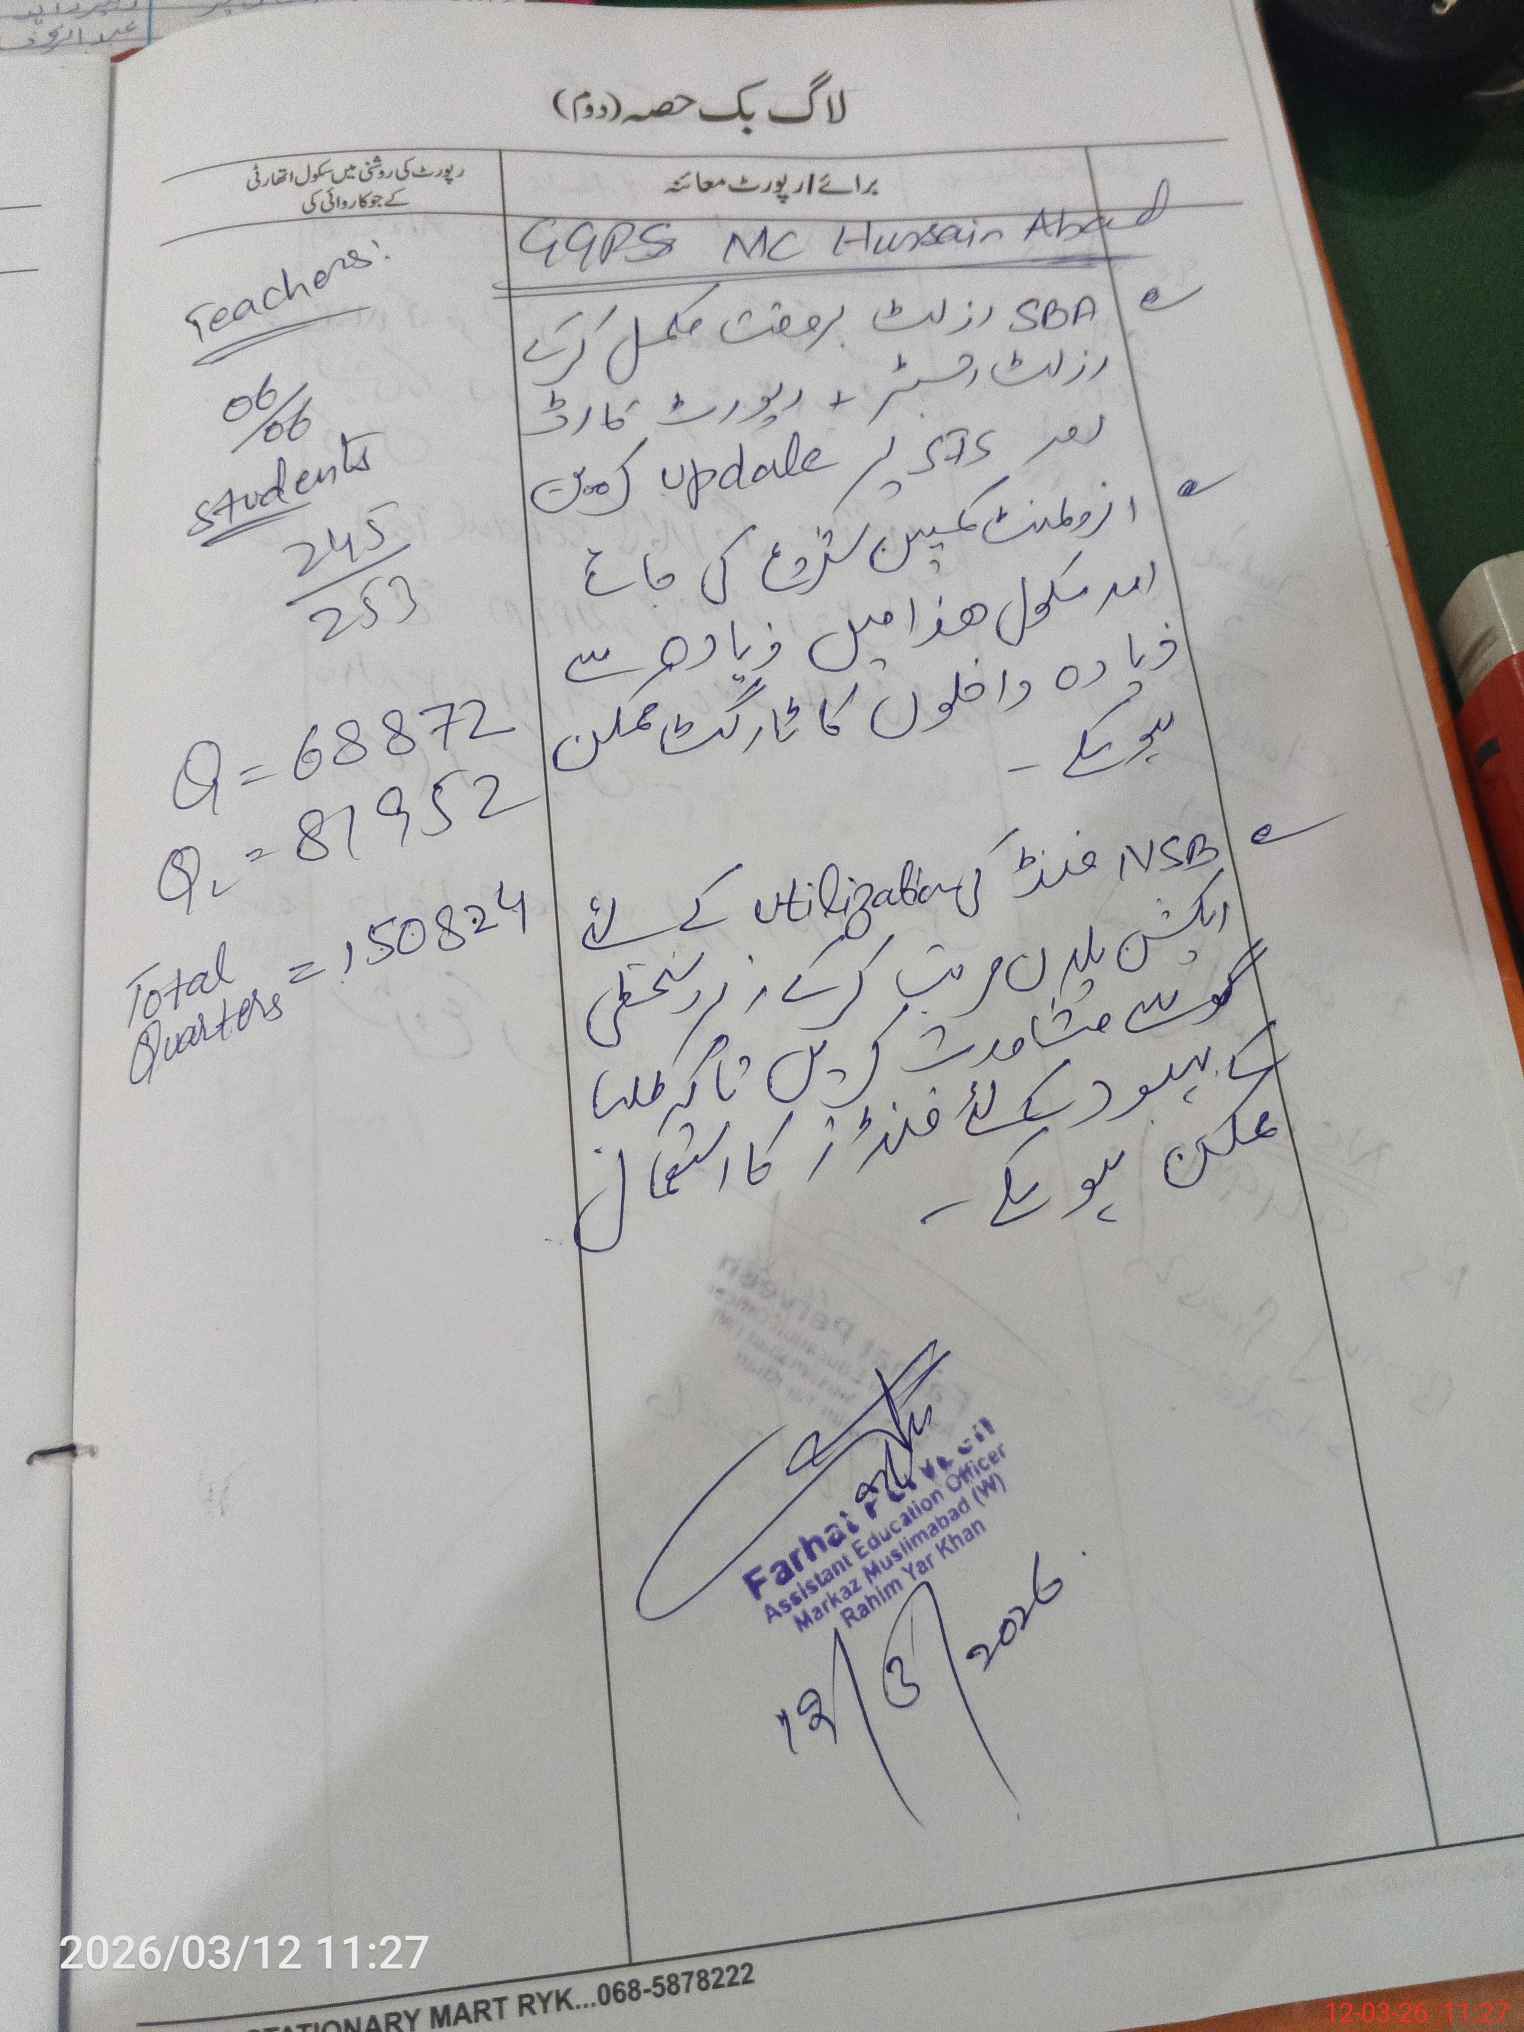 لاگ بک حصہ (دوم)
برائے / رپورٹ معائنہ
رپورٹ کی روشنی میں سکول اتھارٹی
کے جو کاروائی کی
GGPS MC Hussain Abad
SBA رزلٹ بروقت مکمل کرکے
رزلٹ رجسٹر + رپورٹ کارڈ
اور SIS پر update کریں
انرولمنٹ کمپین شروع کی جائے
اور سکول ھذا میں زیادہ سے
زیادہ داخلوں کا ٹارگٹ ممکن
ہو سکے ۔
NSB فنڈ کی utilization کے لئے
ایکشن پلان مرتب کرکے زیر دستخطی
سے مشاورت کریں تاکہ طلبا
کے بہبود کے لئے فنڈز کا استعمال
ممکن ہو سکے ۔
Teachers:
06/06
Students
245
253
Q = 68872
Q2 = 81952
Total
Quarters = 150824
Farhat Parveen
Assistant Education Officer
Markaz Muslimabad (W)
Rahim Yar Khan
12/3/2026
2026/03/12 11:27
STATIONARY MART RYK...068-5878222
12-03-26 11:27